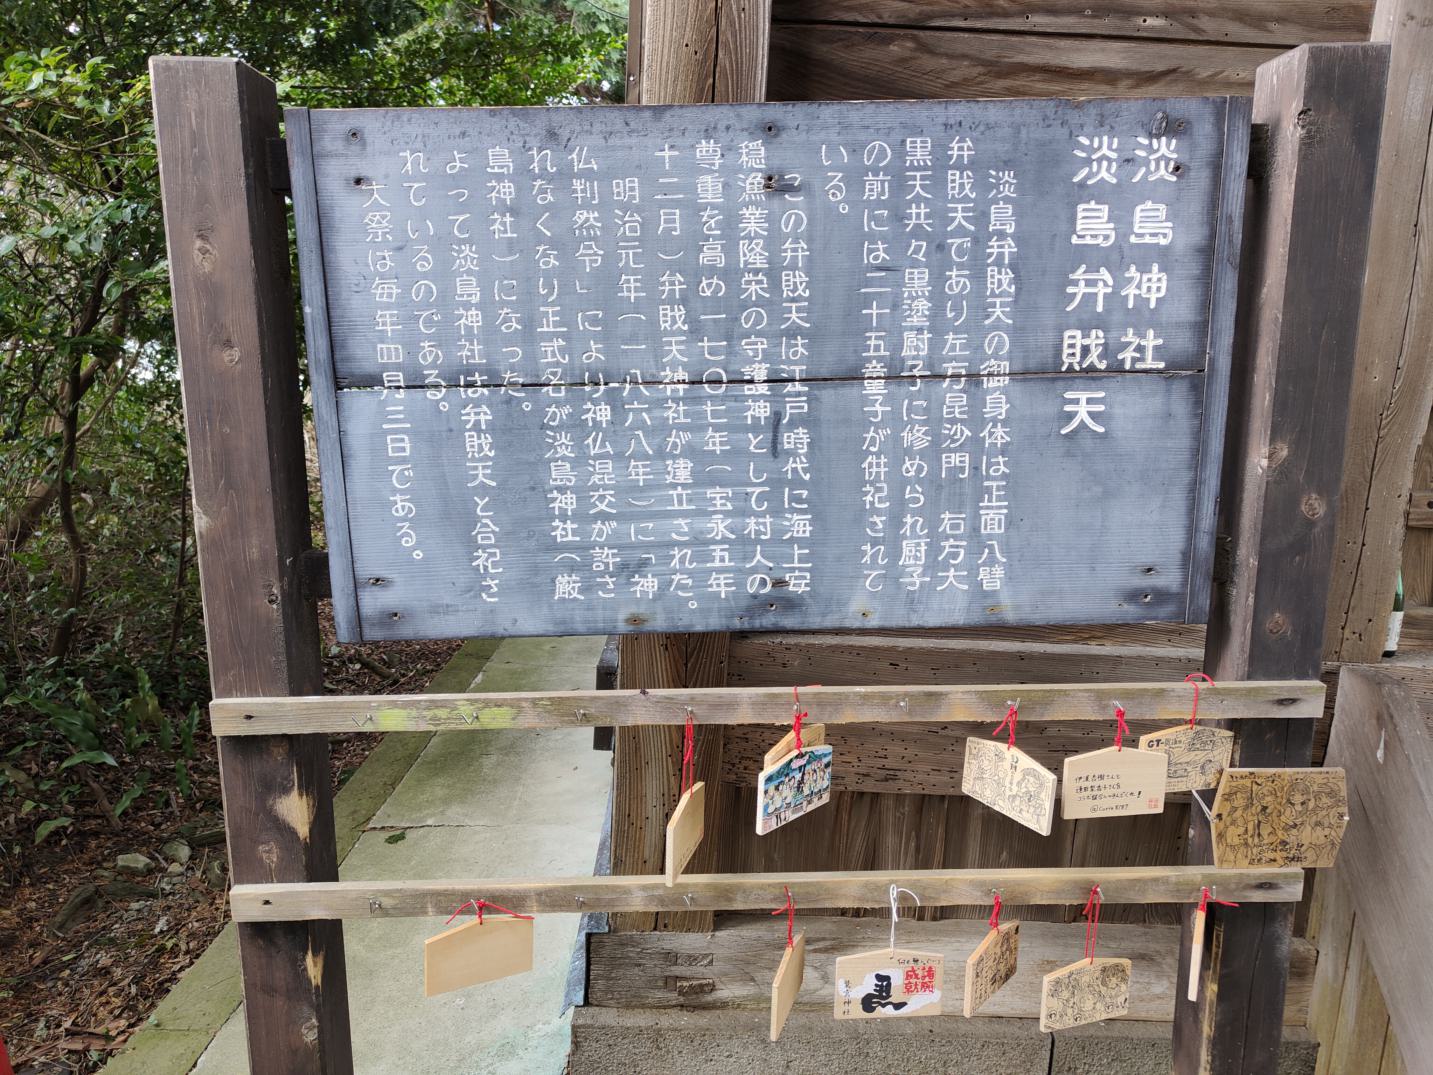 淡島神社
淡島弁賊天
淡島弁賊天の御身体は正面八臂
弁賊天であり左方昆沙門　右方大
黒天共々黒塗厨子に修められ厨子
の前には二十五童子が併祀されて
いる。
この弁賊天は江戸時代に海上安
穏漁業隆栄の守護神として村人の
尊重を高め一七〇七年（宝永五年
十二月）弁賊天神社が建立された。
明治元年（一八六八年）に「神
仏判然令」により神仏混交が許さ
れなくなり正式名が淡島神社（厳
島神社）になった。
よって淡島神社は弁賊天と合祀さ
れているのである。
大祭は毎年四月三日である。
伊漢
GT-
諸願
成就
神社